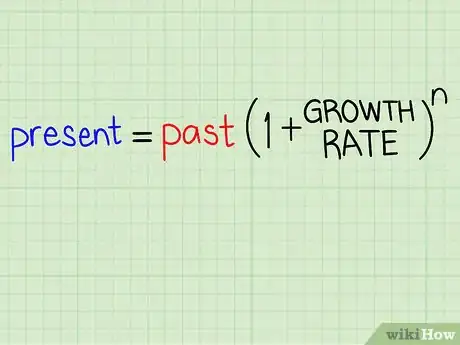 present = past (1 + GROWTH RATE)ⁿ
wikiHow